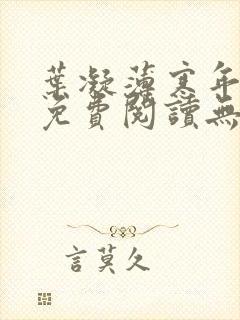 葉凝薄寒年
免費閱讀無
言莫久